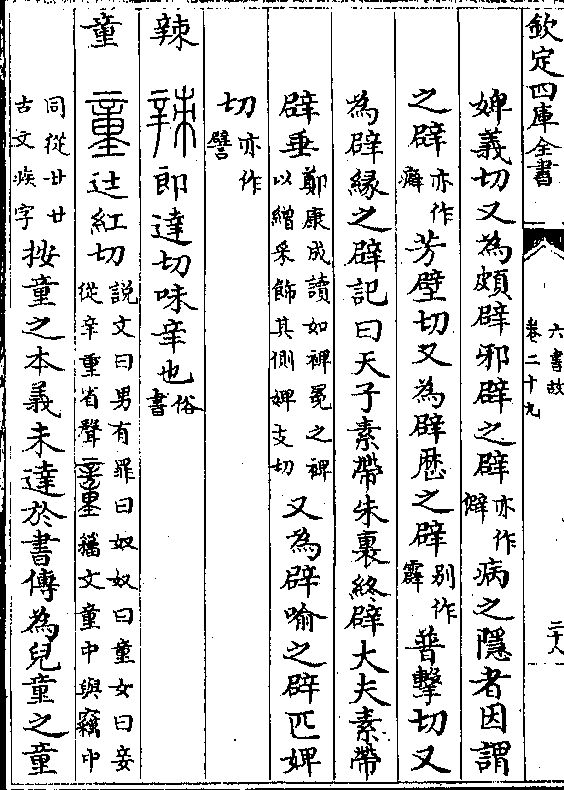 欽定四庫全書
六書故
卷二十九
二十八
婢義切又為頗辟邪辟之辟亦作僻病之隱者因謂
之辟亦作癖芳壁切又為辟歷之辟別作霹普擊切又
為辟緣之辟記曰天子素帶朱裏終辟大夫素帶
辟垂鄭康成讀如裨冕之裨以繒采飾其側婢支切又為辟喻之辟匹婢
切亦作譬
辣 即達切味辛也俗書
童 𨑒紅切說文曰男有罪曰奴奴曰童女曰妾從辛重省聲 籀文童中與竊中
同從廿廿古文疾字按童之本義未達於書傳為兒童之童